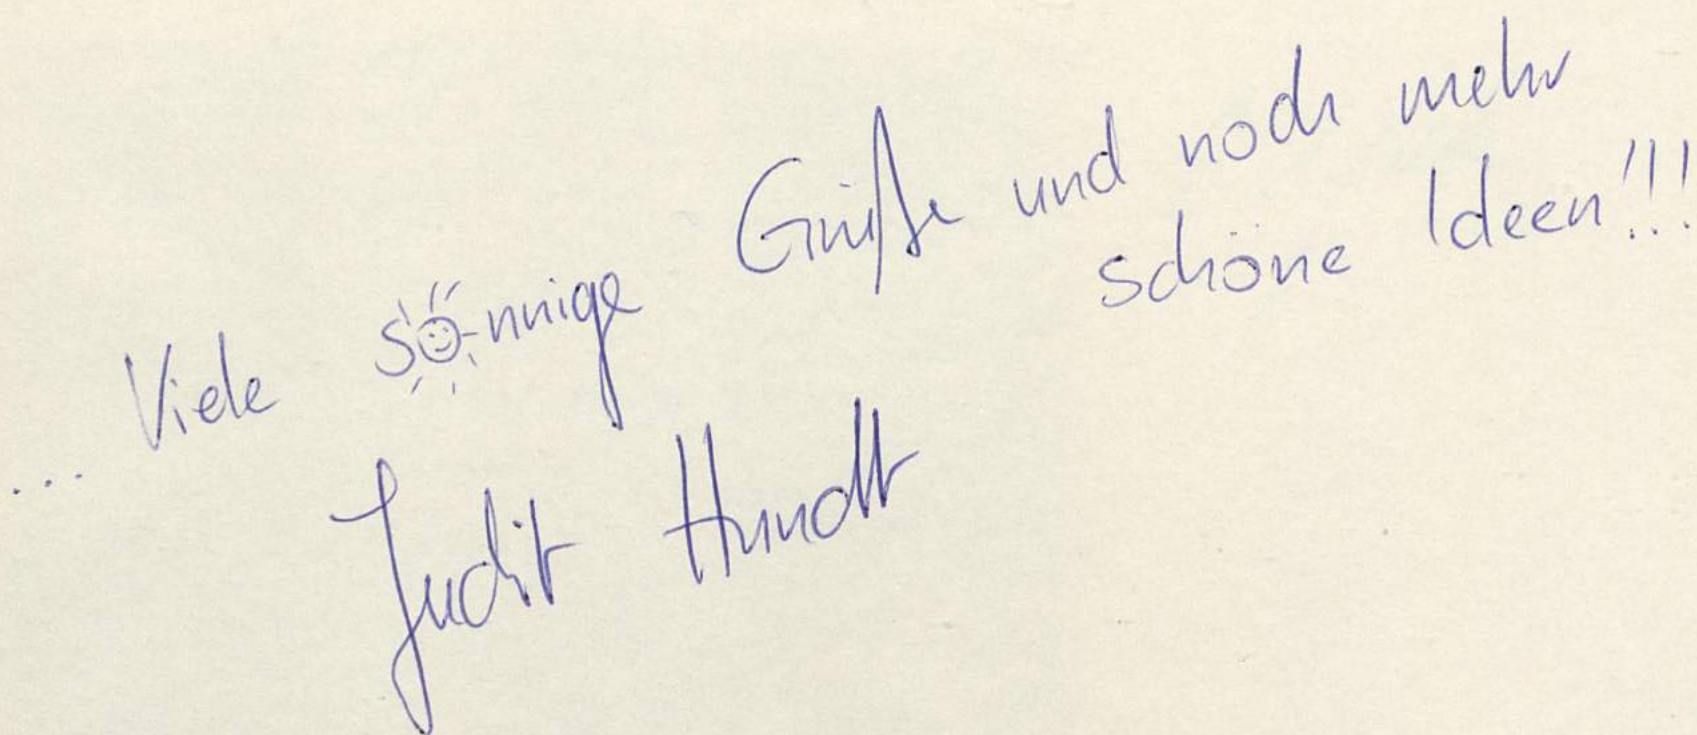 ... Viele sonnige Grüße und noch mehr
schöne Ideen!!!
Judit Hundt